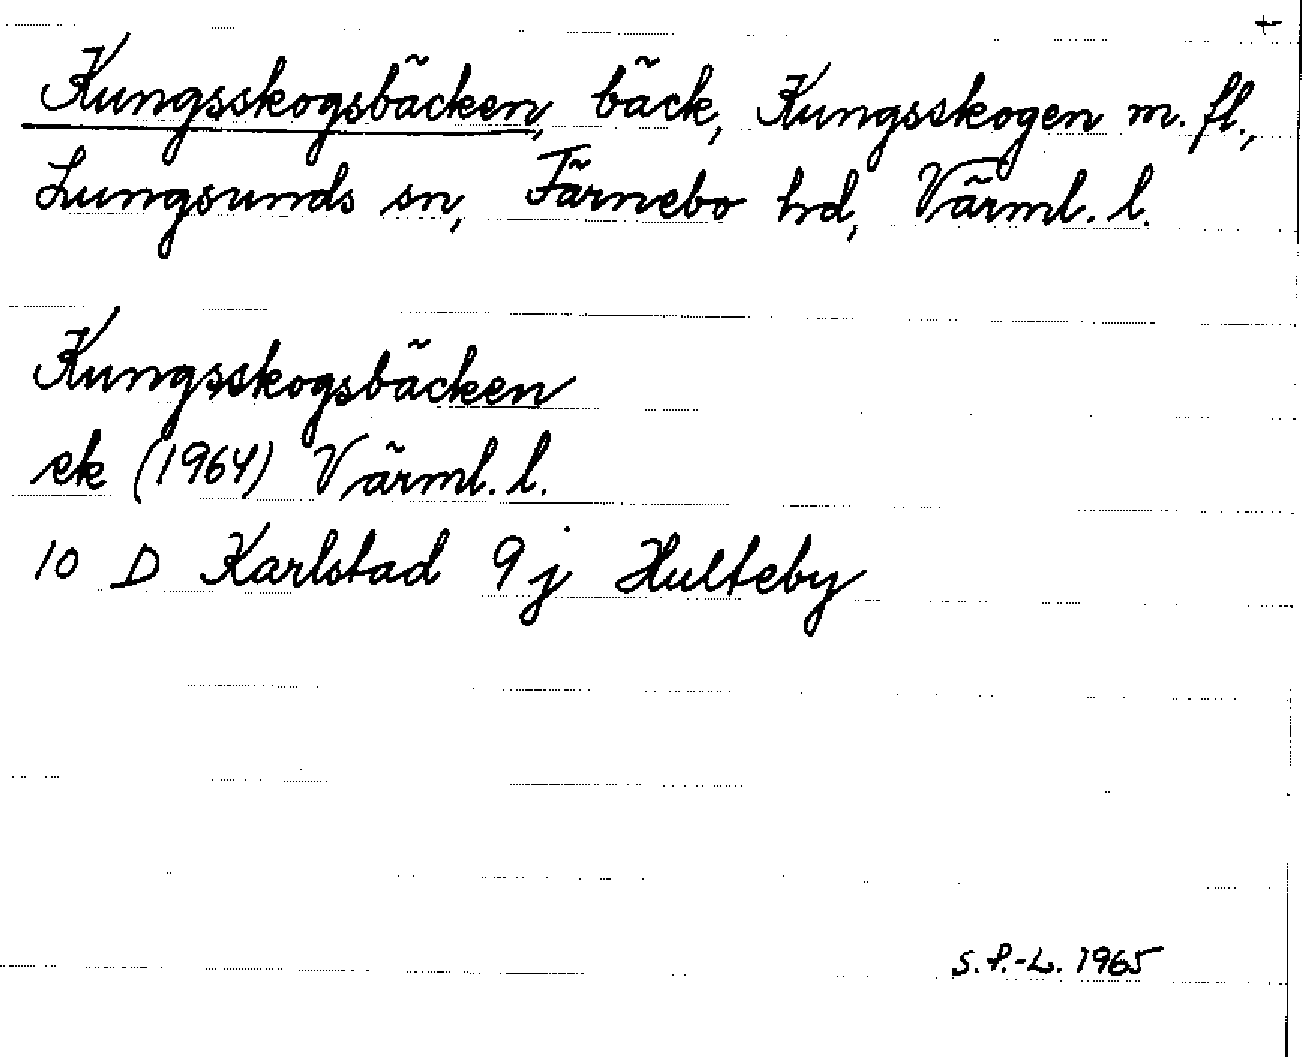 +
Kungsskogsbäcken, bäck, Kungsskogen m. fl.,
Lungsunds sn, Färnebo hd, Värml. l.
Kungsskogsbäcken
ek (1964) Värml. l.
10 D Karlstad 9j Hulteby
S. P.-L. 1965